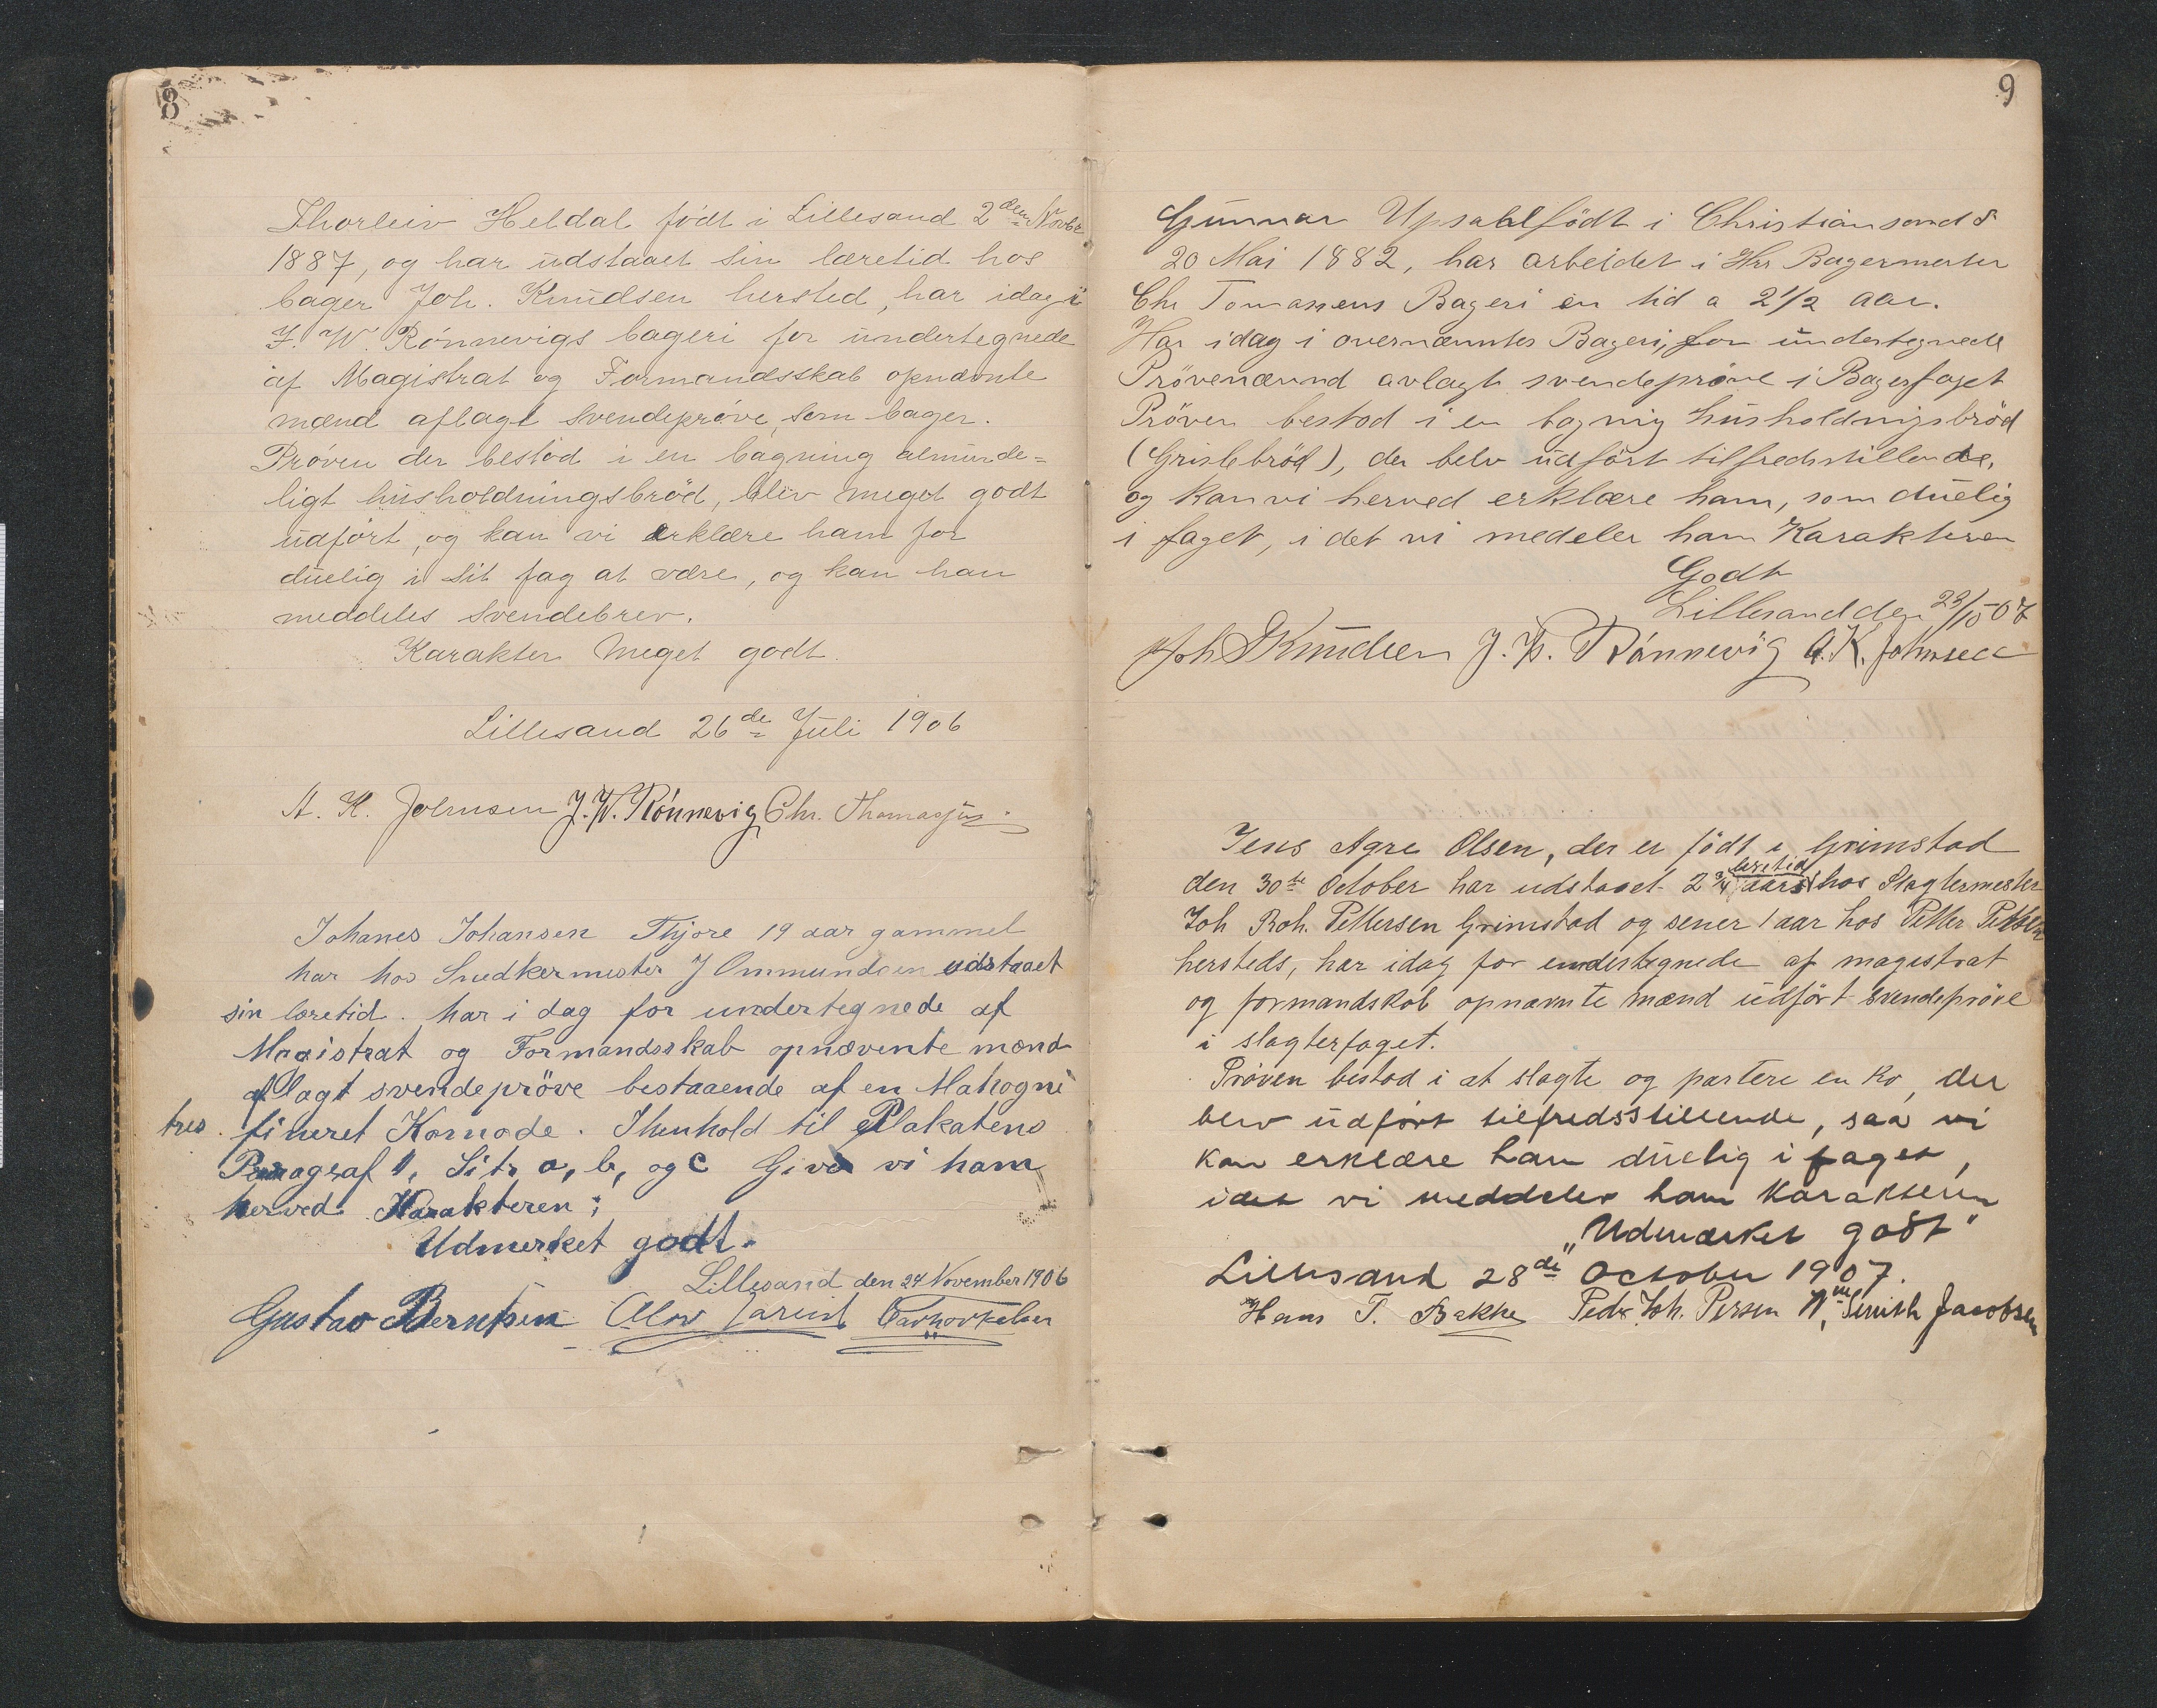 8
Thorleiv Heldal født i Lillesand 2den Novbr
1887, og har udstaaet sin læretid hos
bager Joh. Knudsen hersted, har idag i
J. W. Rönnevigs bageri for undertegnede
af Magistrat og Formandsskab opnævnte
mænd aflagt svendepröve som bager.
Pröven der bestod i en bagning alminde=
ligt husholdningsbröd, blev meget godt
udfört, og kan vi erklære ham for
duelig i sit fag at være, og kan han
meddeles svendebrev.
Karakter Meget godt.
Lillesand 26de Juli 1906
A. K. Johnsen J. W. Rönnevig Chr. Thomassen
Johanes Johansen Thjore 19 aar gammel
har hos Snedkermester J Ommundsen udstaaet
sin læretid. har i dag for undertegnede af
Magistrat og Formandsskab opnævente mænd
aflagt svendepröve bestaaende af en Mahogni
tres fineret Komode. I henhold til Plakatens
Paragraf 1, Litr a, b, og c Giver vi ham
herved Karakteren;
Udmerket godt.
Lillesand den 24 November 1906
Gustav Berntsen
9
Gunnar Upsahl födt i Christiansand S
20 Mai 1882, har arbeidet i Hrr Bagermester
Chr Tomasens Bageri en tid a 2 1/2 aar.
Har idag i overnævntes Bageri, for undertegnede
Prövenævnd avlagt svendepröve i Bagerfaget
Pröven bestod i en bagnig husholdnigsbröd
(Grislebröd), der belv udfört tilfredstillende,
og kan vi herved erklære ham, som duelig
i faget, i det vi medeler ham Karakteren
Godt
Lillesand den 23/10 07
Joh Knudsen J. W. Rönnevig A. K. Johnsen
Jens Agre Olsen, der er födt i Grimstad
læretid
den 30te October har udstaaet 2 3/4 aars hos Slagtermester
Joh Roh. Pettersen Grimstad og sener 1 aar hos Petter Pettersen
hersteds, har idag for undertegnede af magistrat
og formandskab opnævnte mænd udfört svendepröve
i slagterfaget.
Pröven bestod i at slagte og partere en ko, der
blev udfört tilfredsstillende, saa vi
kan erklære ham duelig i faget,
idet vi meddeler ham karakteren
„Udmærket godt"
Lillesand 28de October 1907.
Hans T. Bakke Pedr. Joh. Persen Wm Smith Jacobsen